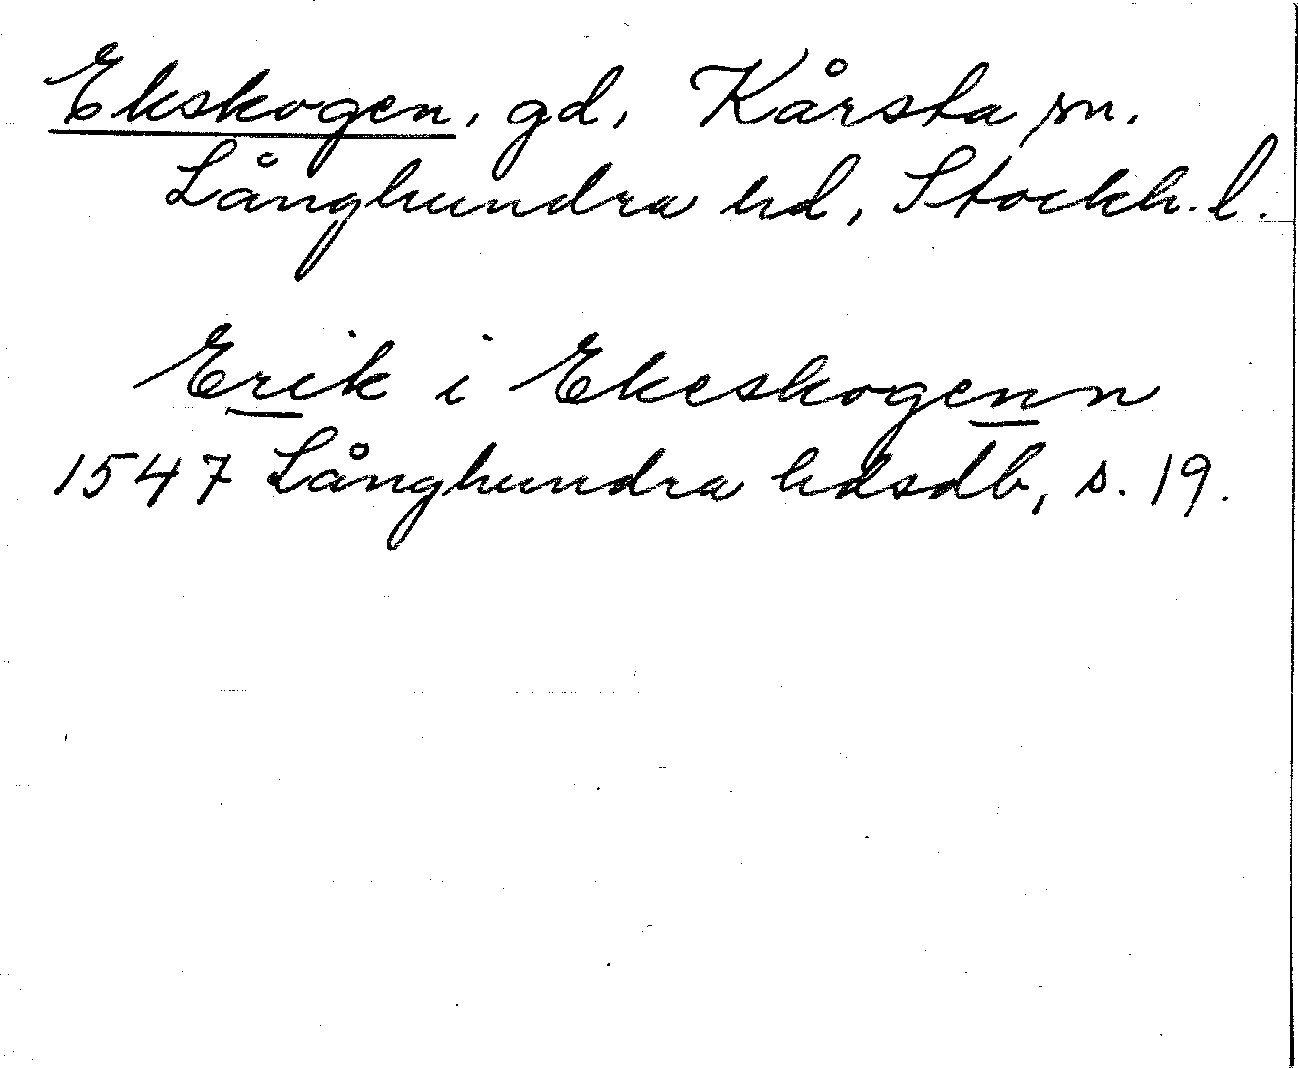 Ekskogen, gd, Kårsta sn.
Långhundra hd, Stockh. l.
Erik i Ekeskogenn
1547 Långhundra hdsdb, s. 19.